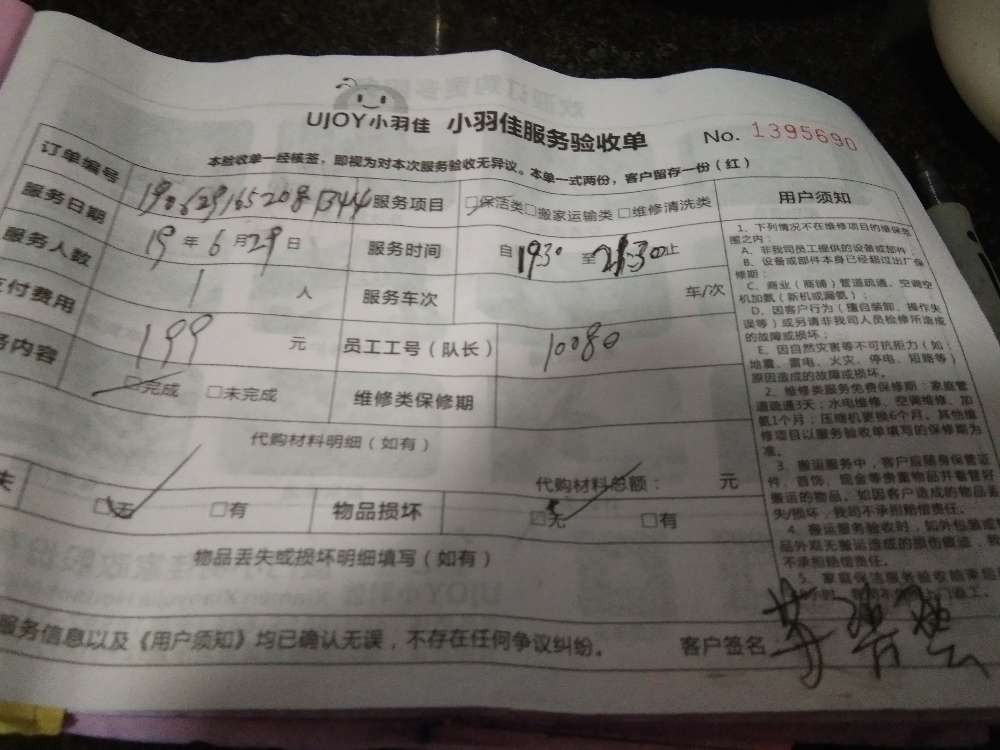 UJOY小羽佳 小羽佳服务验收单 No. 1395690
本验收单一经核签，即视为对本次服务验收无异议。本单一式两份，客户留存一份（红）
订单编号 190629165208 1344 服务项目 □保洁类□搬家运输类 □维修清洗类 用户须知
服务日期 19 年 6 月 29 日 服务时间 自 1930 至 2130止
服务人数 1 人 服务车次 车/次
付费用 199 元 员工工号（队长） 10080
务内容 □完成 □未完成 维修类保修期
代购材料明细（如有）
代购材料总额： 元
失 □无 □有 物品损坏 □无 □有
物品丢失或损坏明细填写（如有）
服务信息以及《用户须知》均已确认无误，不存在任何争议纠纷。 客户签名
1、下列情况不在维修项目的维保范
围之内：
A、非我司员工提供的设备或部件；
B、设备或部件本身已经超过出厂保
修期；
C、商业（商铺）管道疏通、空调空
机加氨（新机或漏氨）；
D、因客户行为（擅自装卸、操作失
误等）或另请非我司人员检修所造成
的故障或损坏；
E、因自然灾害等不可抗拒力（如：
地震、雷电、火灾、停电、短路等）
原因造成的故障或损坏。
2、维修类服务免费保修期：家庭管
道疏通3天；水电维修、空调维修、加
氨1个月；压缩机更换6个月。其他维
修项目以服务验收单填写的保修期为
准。
3、搬运服务中，客户应随身保管证
件、首饰、现金等贵重物品并看管好
搬运的物品。如因客户造成的物品丢
失/损坏，我司不承担赔偿责任。
4、搬运服务验收时，如外包装或
品外观无搬运造成的损伤痕迹，我
不承担赔偿责任。
5、家庭保洁服务验收结束后